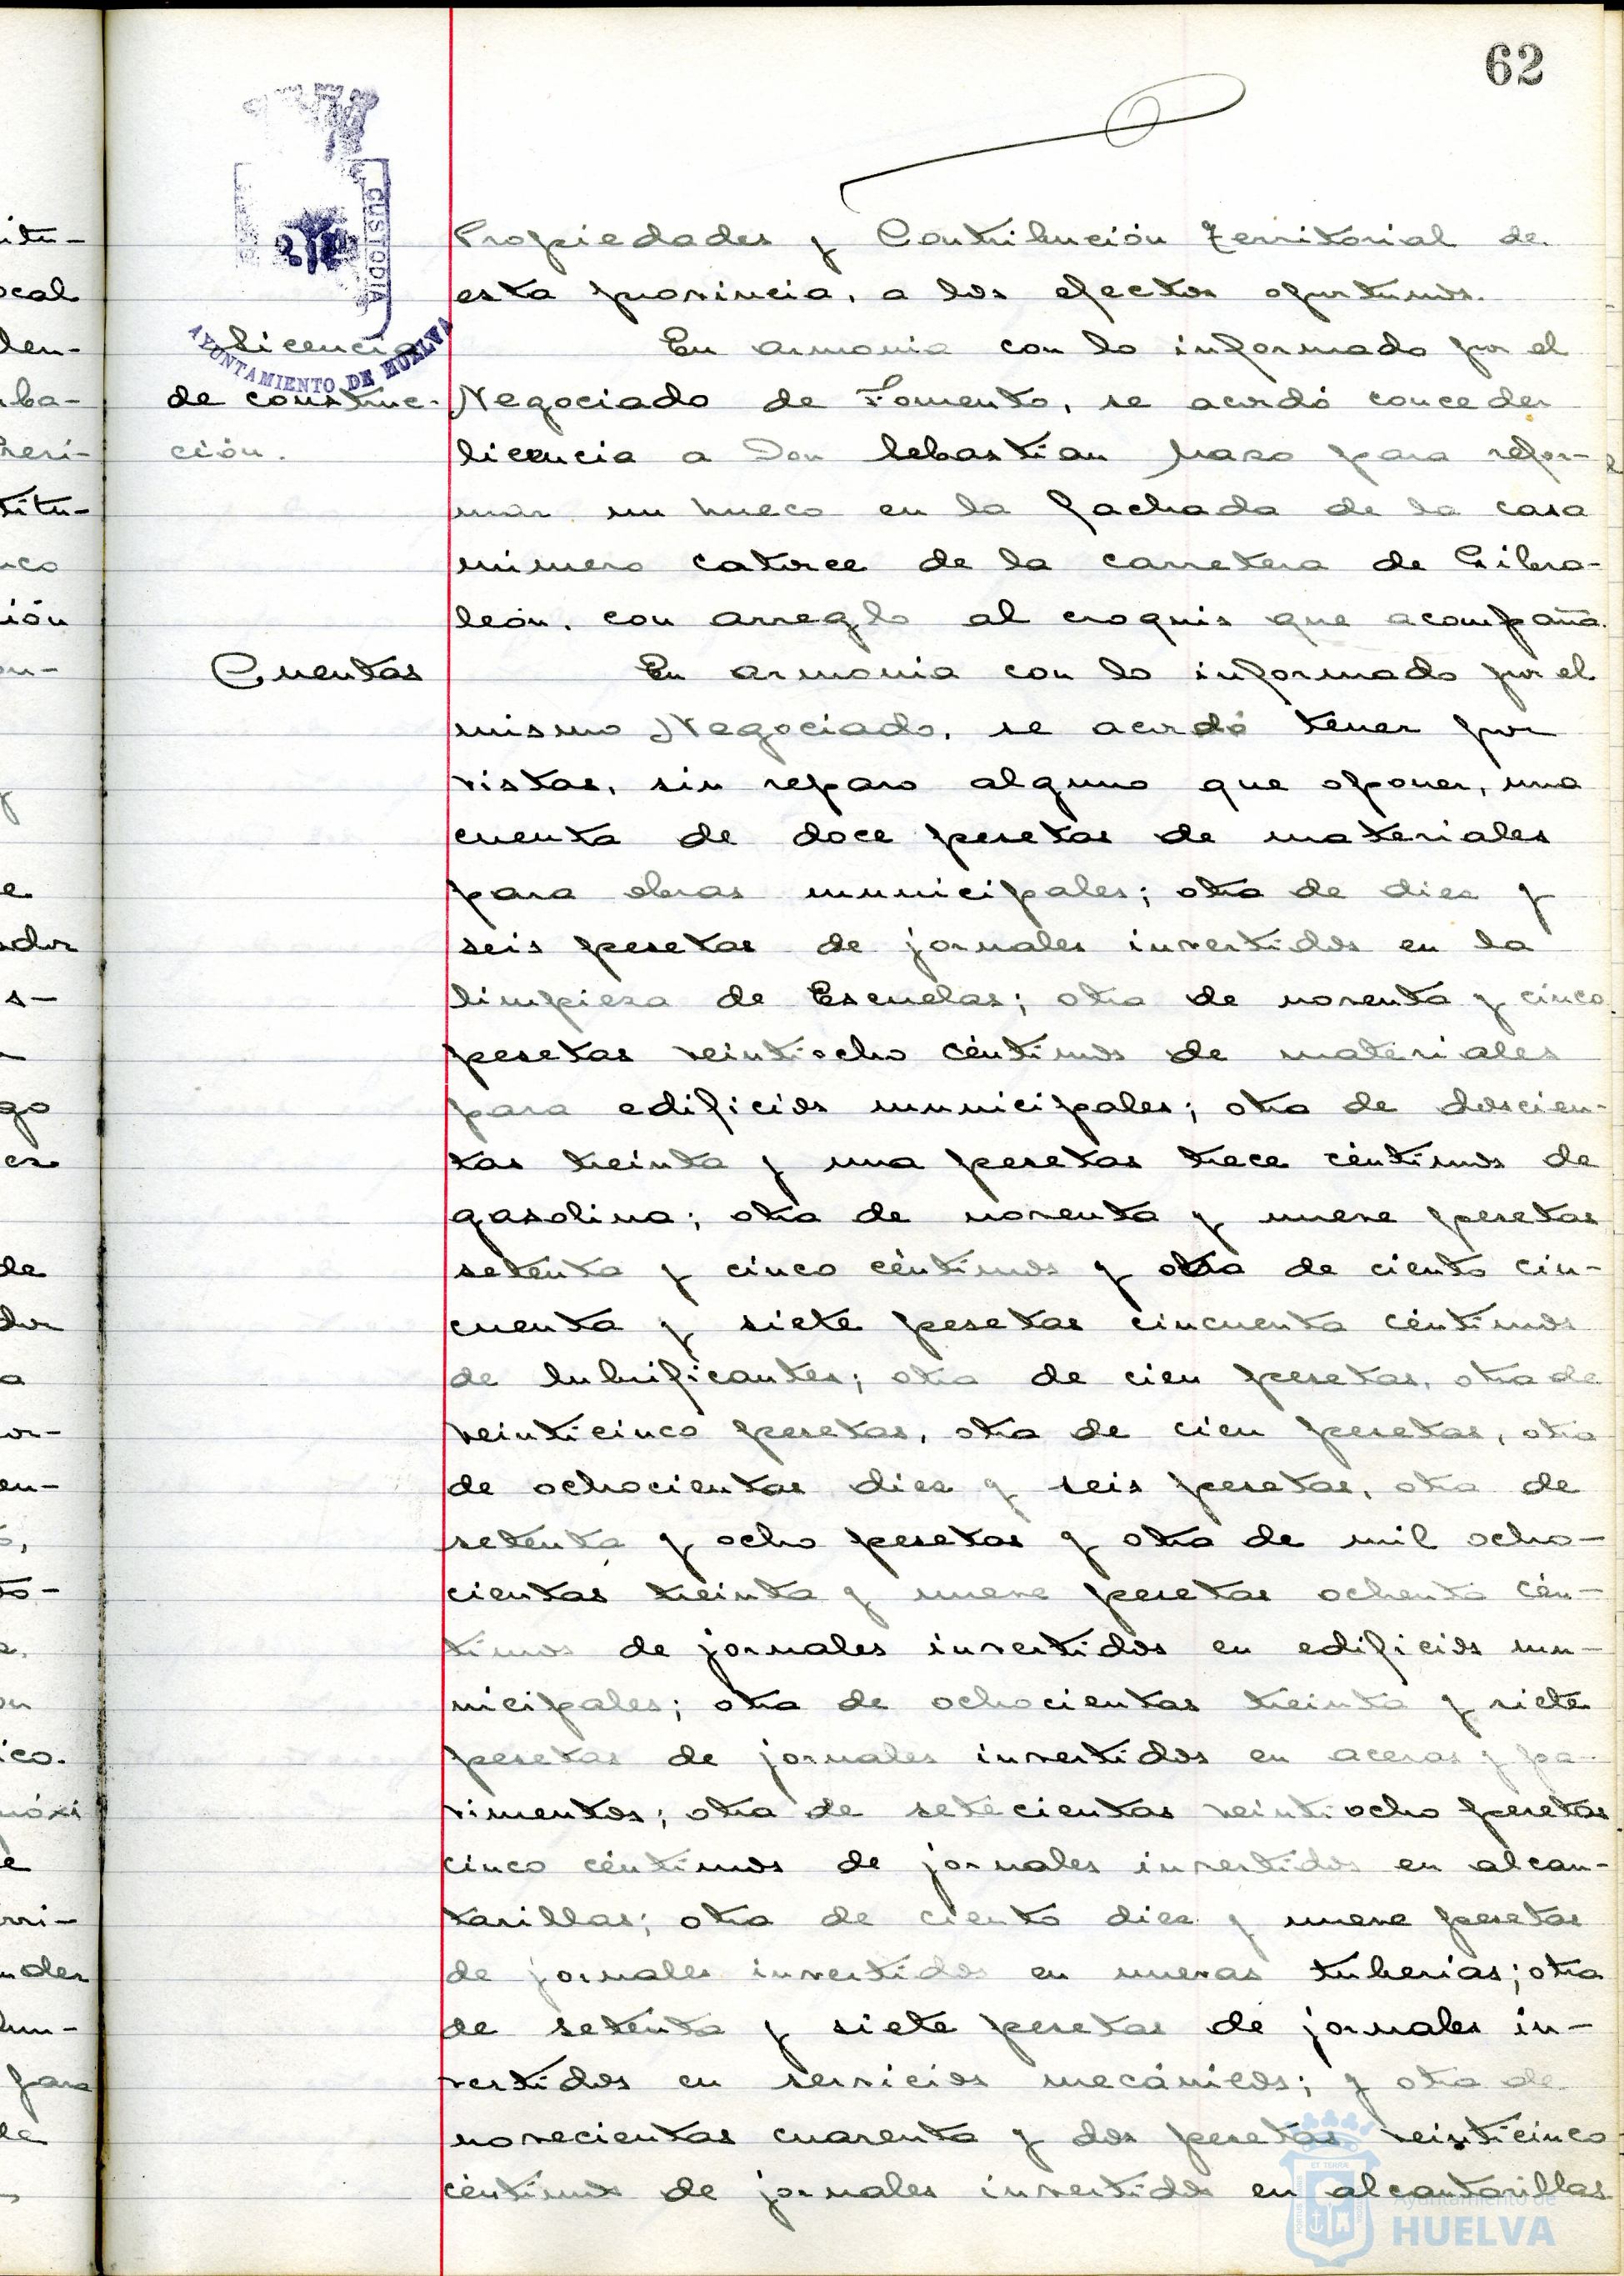 62
CUSTODIA
AYUNTAMIENTO DE HUELVA
Propiedades y Contribución Territorial de
esta provincia, a los efectos oportunos.
Licencia
de construc-
ción.
En armonia con lo informado por el
Negociado de Fomento, se acordó conceder
licencia a Don Sebastian para refor-
mar un hueco en la fachada de la casa
número catorce de la carretera de Gibra-
león, con arreglo al croquis que acompaña.
Cuentas
En armonia con lo informado por el
mismo Negociado, se acordó tener por
vistas, sin reparo alguno que oponer, una
cuenta de doce pesetas de materiales
para obras municipales; otra de diez y
seis pesetas de jornales invertidos en la
limpieza de Escuelas; otra de noventa y cinco
pesetas veintiocho céntimos de materiales
para edificios municipales; otra de doscien-
tas treinta y una pesetas trece céntimos de
gasolina; otra de noventa y nueve pesetas
setenta y cinco céntimos y otra de ciento cin-
cuenta y siete pesetas cincuenta céntimos
de lubrificantes; otra de cien pesetas, otra de
veinticinco pesetas, otra de cien pesetas, otra
de ochocientas diez y seis pesetas, otra de
setenta y ocho pesetas y otra de mil ocho-
cientas treinta y nueve pesetas ochenta cén-
timos de jornales invertidos en edificios mu-
nicipales; otra de ochocientas treinta y siete
pesetas de jornales invertidos en aceras y pa-
vimentos; otra de setecientas veintiocho pesetas
cinco céntimos de jornales invertidos en alcan-
tarillas; otra de ciento diez y nueve pesetas
de jornales invertidos en nuevas tuberias; otra
de setenta y siete pesetas de jornales in-
vertidos en servicios mecánicos; y otra de
novecientas cuarenta y dos pesetas veinticinco
céntimos de jornales invertidos en alcantarillas
Ayuntamiento de
HUELVA